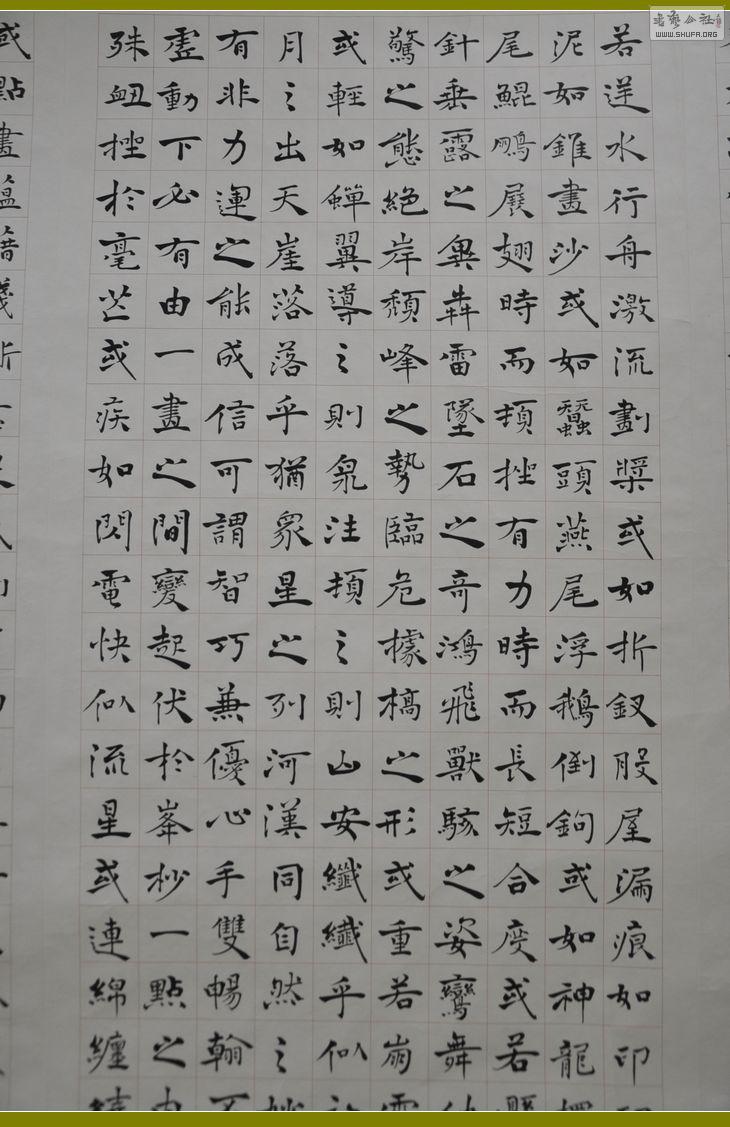 若逆水行舟激流劃槳或如折釵股屋漏痕如印
泥如錐畫沙或如蠶頭燕尾浮鵝倒鉤或如神龍
尾鯤鵬展翅時而頓挫有力時而長短合度或若
針垂露之異犇雷墜石之奇鴻飛獸駭之姿鸞舞
驚之態絕岸頹峰之勢臨危據槁之形或重若崩
或輕如蟬翼導之則泉注頓之則山安纖纖乎似
月之出天崖落落乎猶眾星之列河漢同自然之
有非力運之能成信可謂智巧兼優心手雙暢翰
虛動下必有由一畫之間變起伏於峯杪一點之
殊衄挫於毫芒或疾如閃電快似流星或連綿纏
或點畫
書藝公社
WWW.SHUFA.ORG